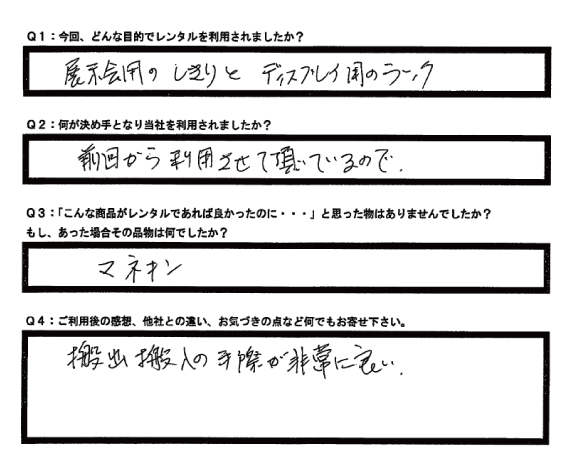 Q1：今回、どんな目的でレンタルを利用されましたか？
展示会用のしきりと ディスプレイ用のラック
Q2：何が決め手となり当社を利用されましたか？
前回から利用させて頂いているので.
Q3：「こんな商品がレンタルであれば良かったのに・・・」と思った物はありませんでしたか？
もし、あった場合その品物は何でしたか？
マネキン
Q4：ご利用後の感想、他社との違い、お気づきの点など何でもお寄せ下さい。
搬出搬入の手際が非常に良い.